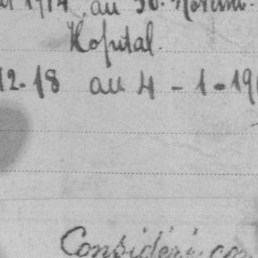 au 30. Novem
Hopital.
12-18 au 4-1-19
Considéré co